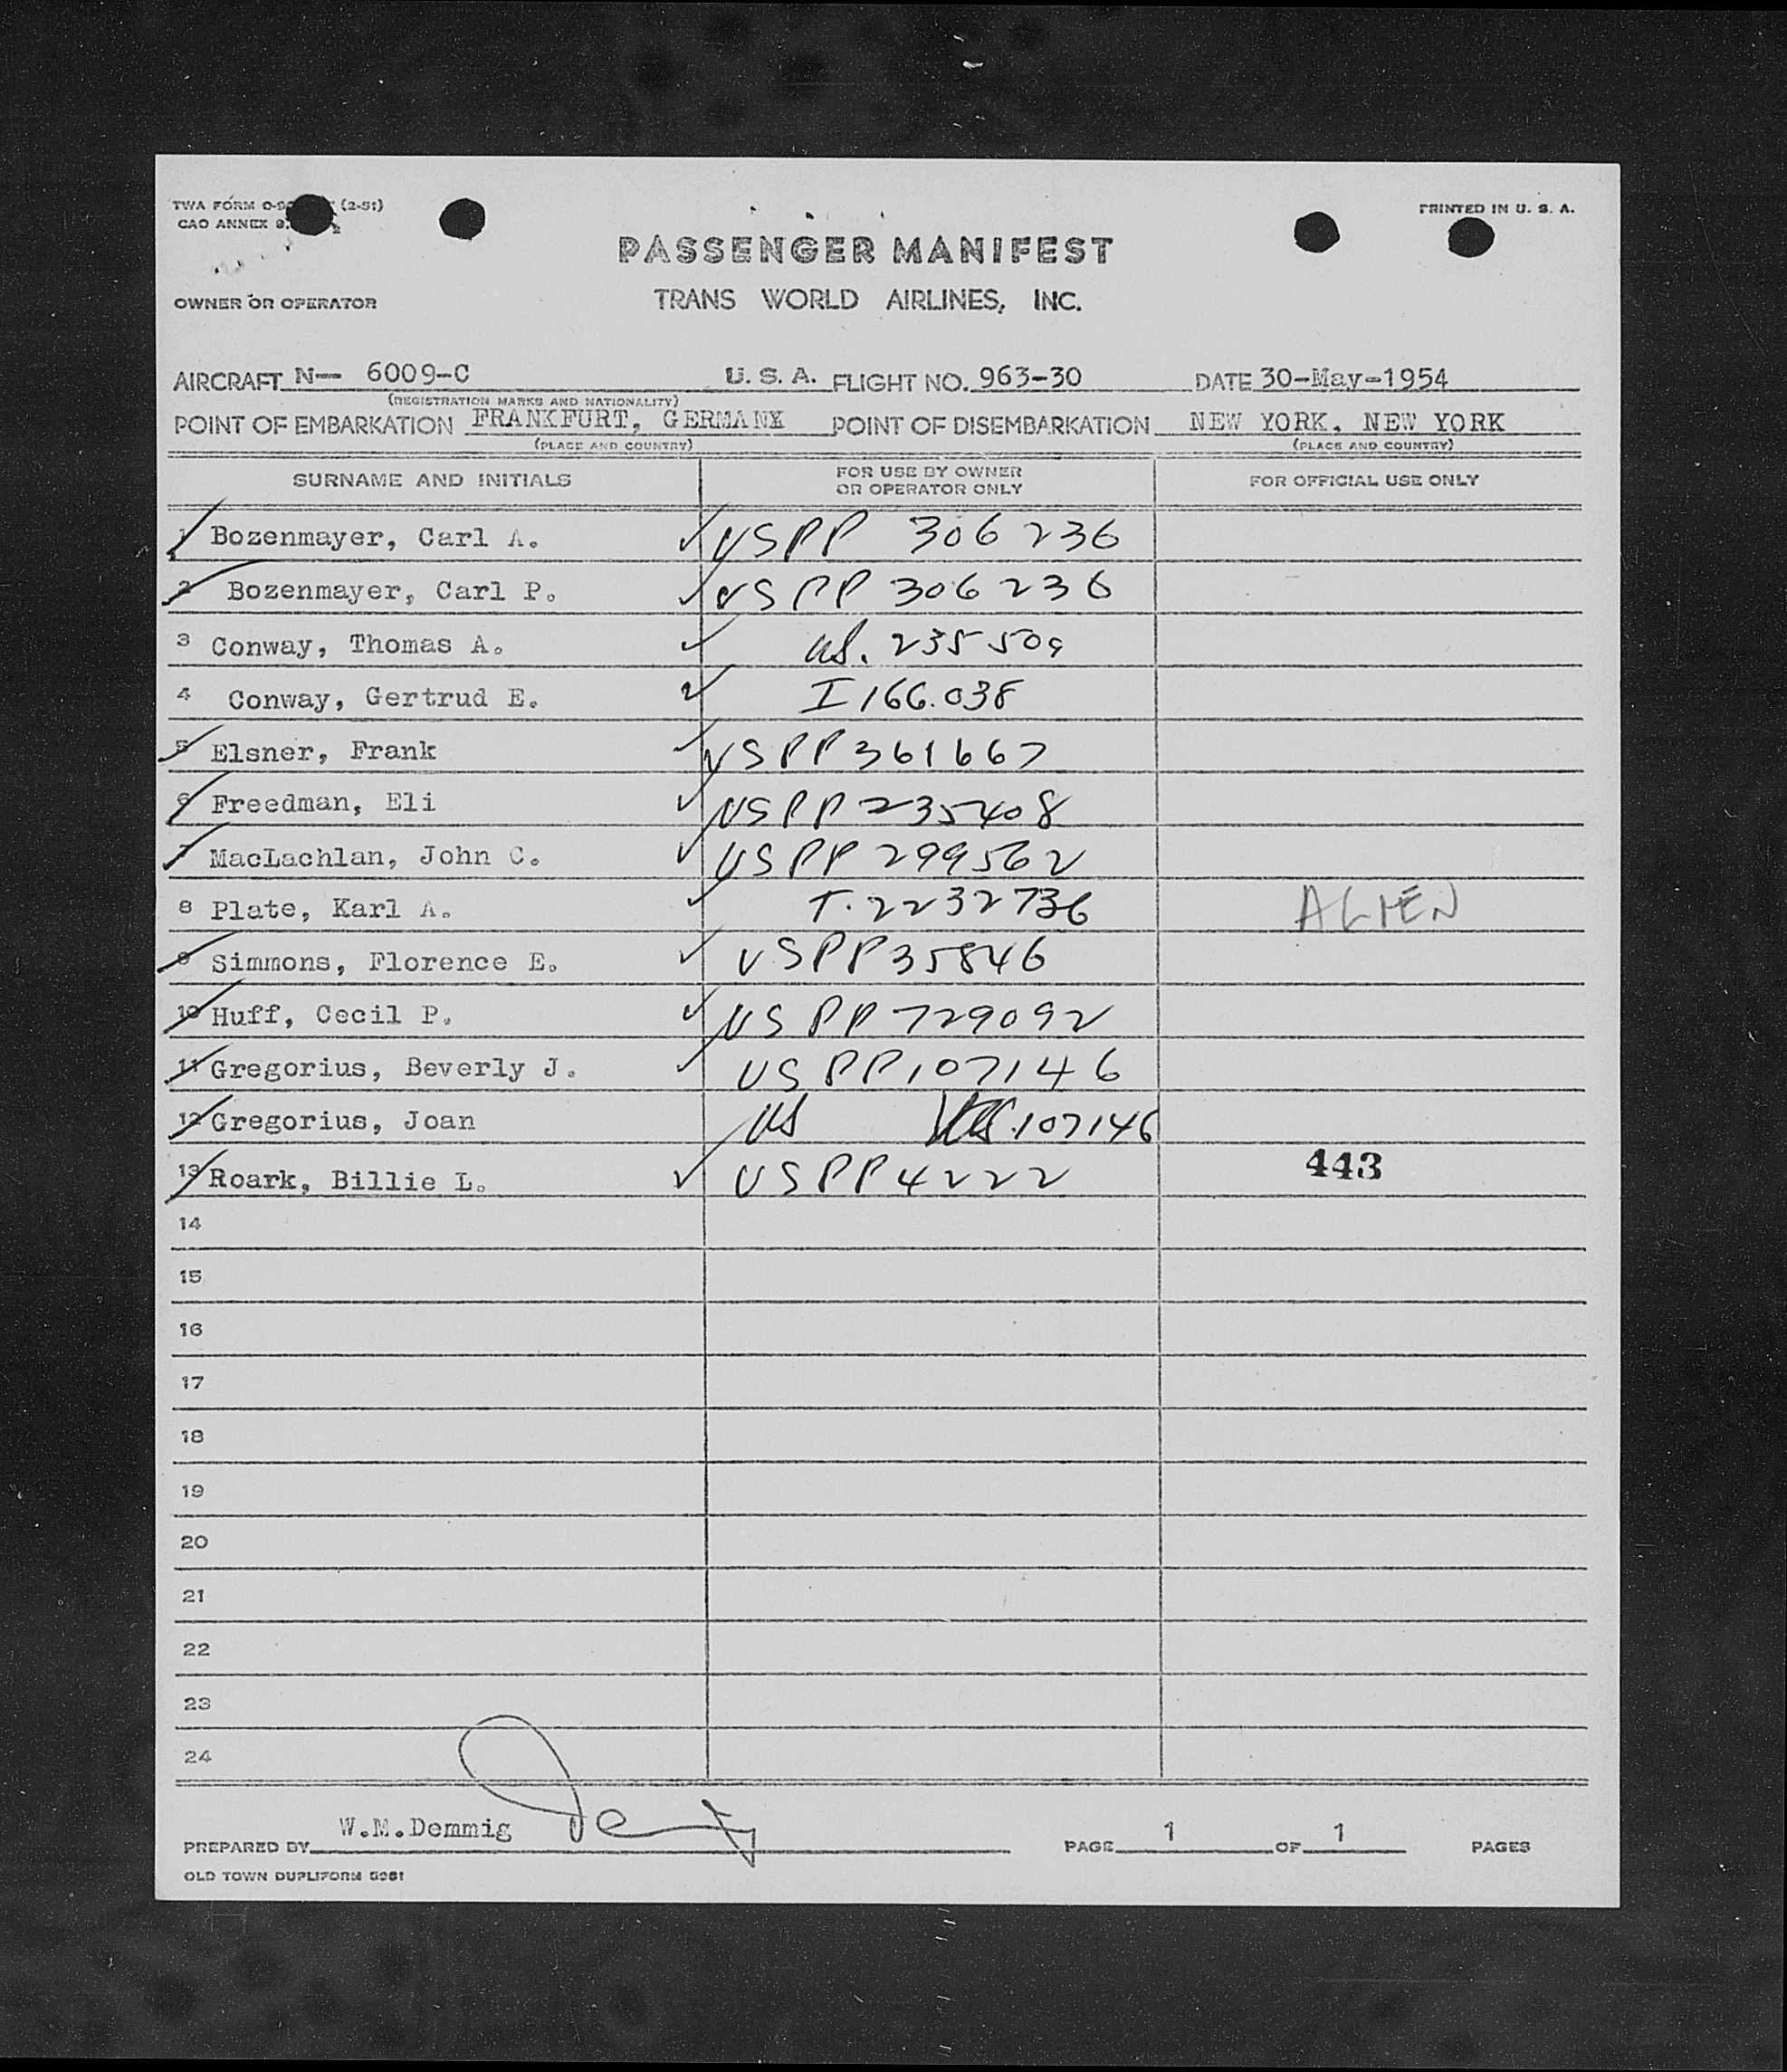 TWA FORM O-9 (2-51)
CAO ANNEX 9,
PRINTED IN U. S. A.
PASSENGER MANIFEST
OWNER OR OPERATOR TRANS WORLD AIRLINES, INC.
AIRCRAFT N— 6009-C U. S. A. FLIGHT NO. 963-30 DATE 30-May-1954
(REGISTRATION MARKS AND NATIONALITY)
POINT OF EMBARKATION FRANKFURT, GERMANY POINT OF DISEMBARKATION NEW YORK, NEW YORK
(PLACE AND COUNTRY) (PLACE AND COUNTRY)
SURNAME AND INITIALS FOR USE BY OWNER OR OPERATOR ONLY FOR OFFICIAL USE ONLY
1 Bozenmayer, Carl A. ✓ USPP 306236
2 Bozenmayer, Carl P. ✓ USPP 306236
3 Conway, Thomas A. ✓ US. 235509
4 Conway, Gertrud E. ✓ I 166.038
5 Elsner, Frank ✓ USPP 361667
6 Freedman, Eli ✓ USPP 235408
7 MacLachlan, John C. ✓ USPP 299562
8 Plate, Karl A. ✓ T. 2232736 ALIEN
9 Simmons, Florence E. ✓ USPP 35846
10 Huff, Cecil P. ✓ USPP 729092
11 Gregorius, Beverly J. ✓ USPP 107146
12 Gregorius, Joan US 107146
13 Roark, Billie L. ✓ USPP 4222 443
14
15
16
17
18
19
20
21
22
23
24
PREPARED BY W.M.Demmig PAGE 1 OF 1 PAGES
OLD TOWN DUPLIFORM 5981